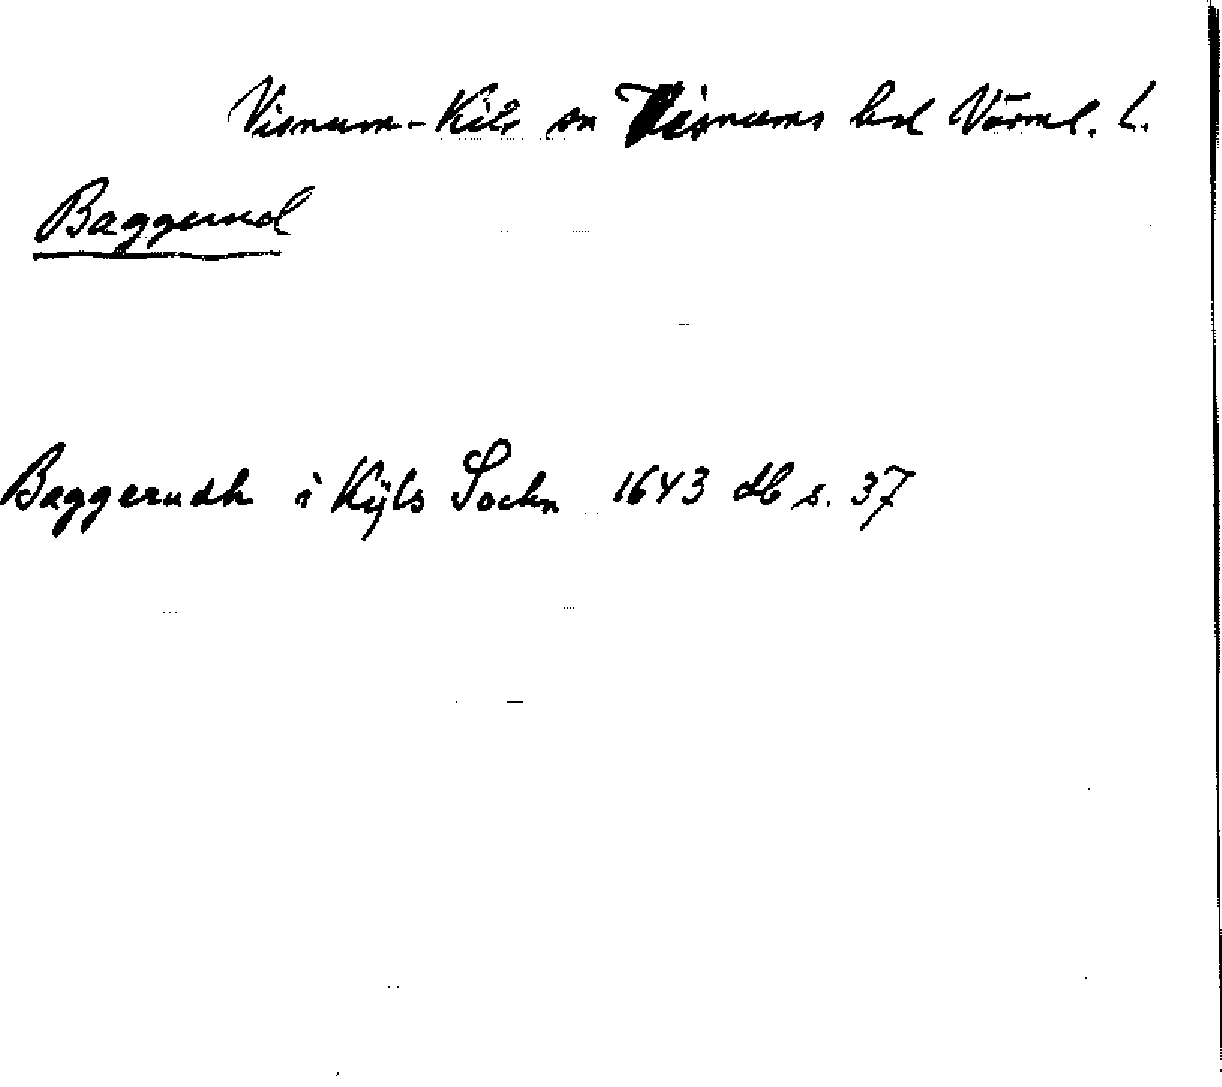 Visnum-Kils sn Visnums hd Värml. L.
Baggerud
Baggerudh i Kÿls Sochn 1643 db s. 37